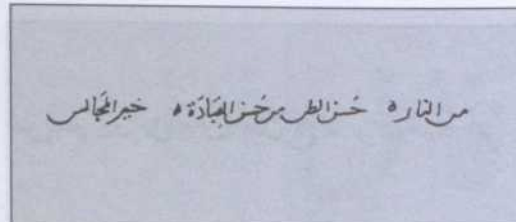 من النار ه حُسن الظن من حُسن العِبَادَة ه خير المَجَالس